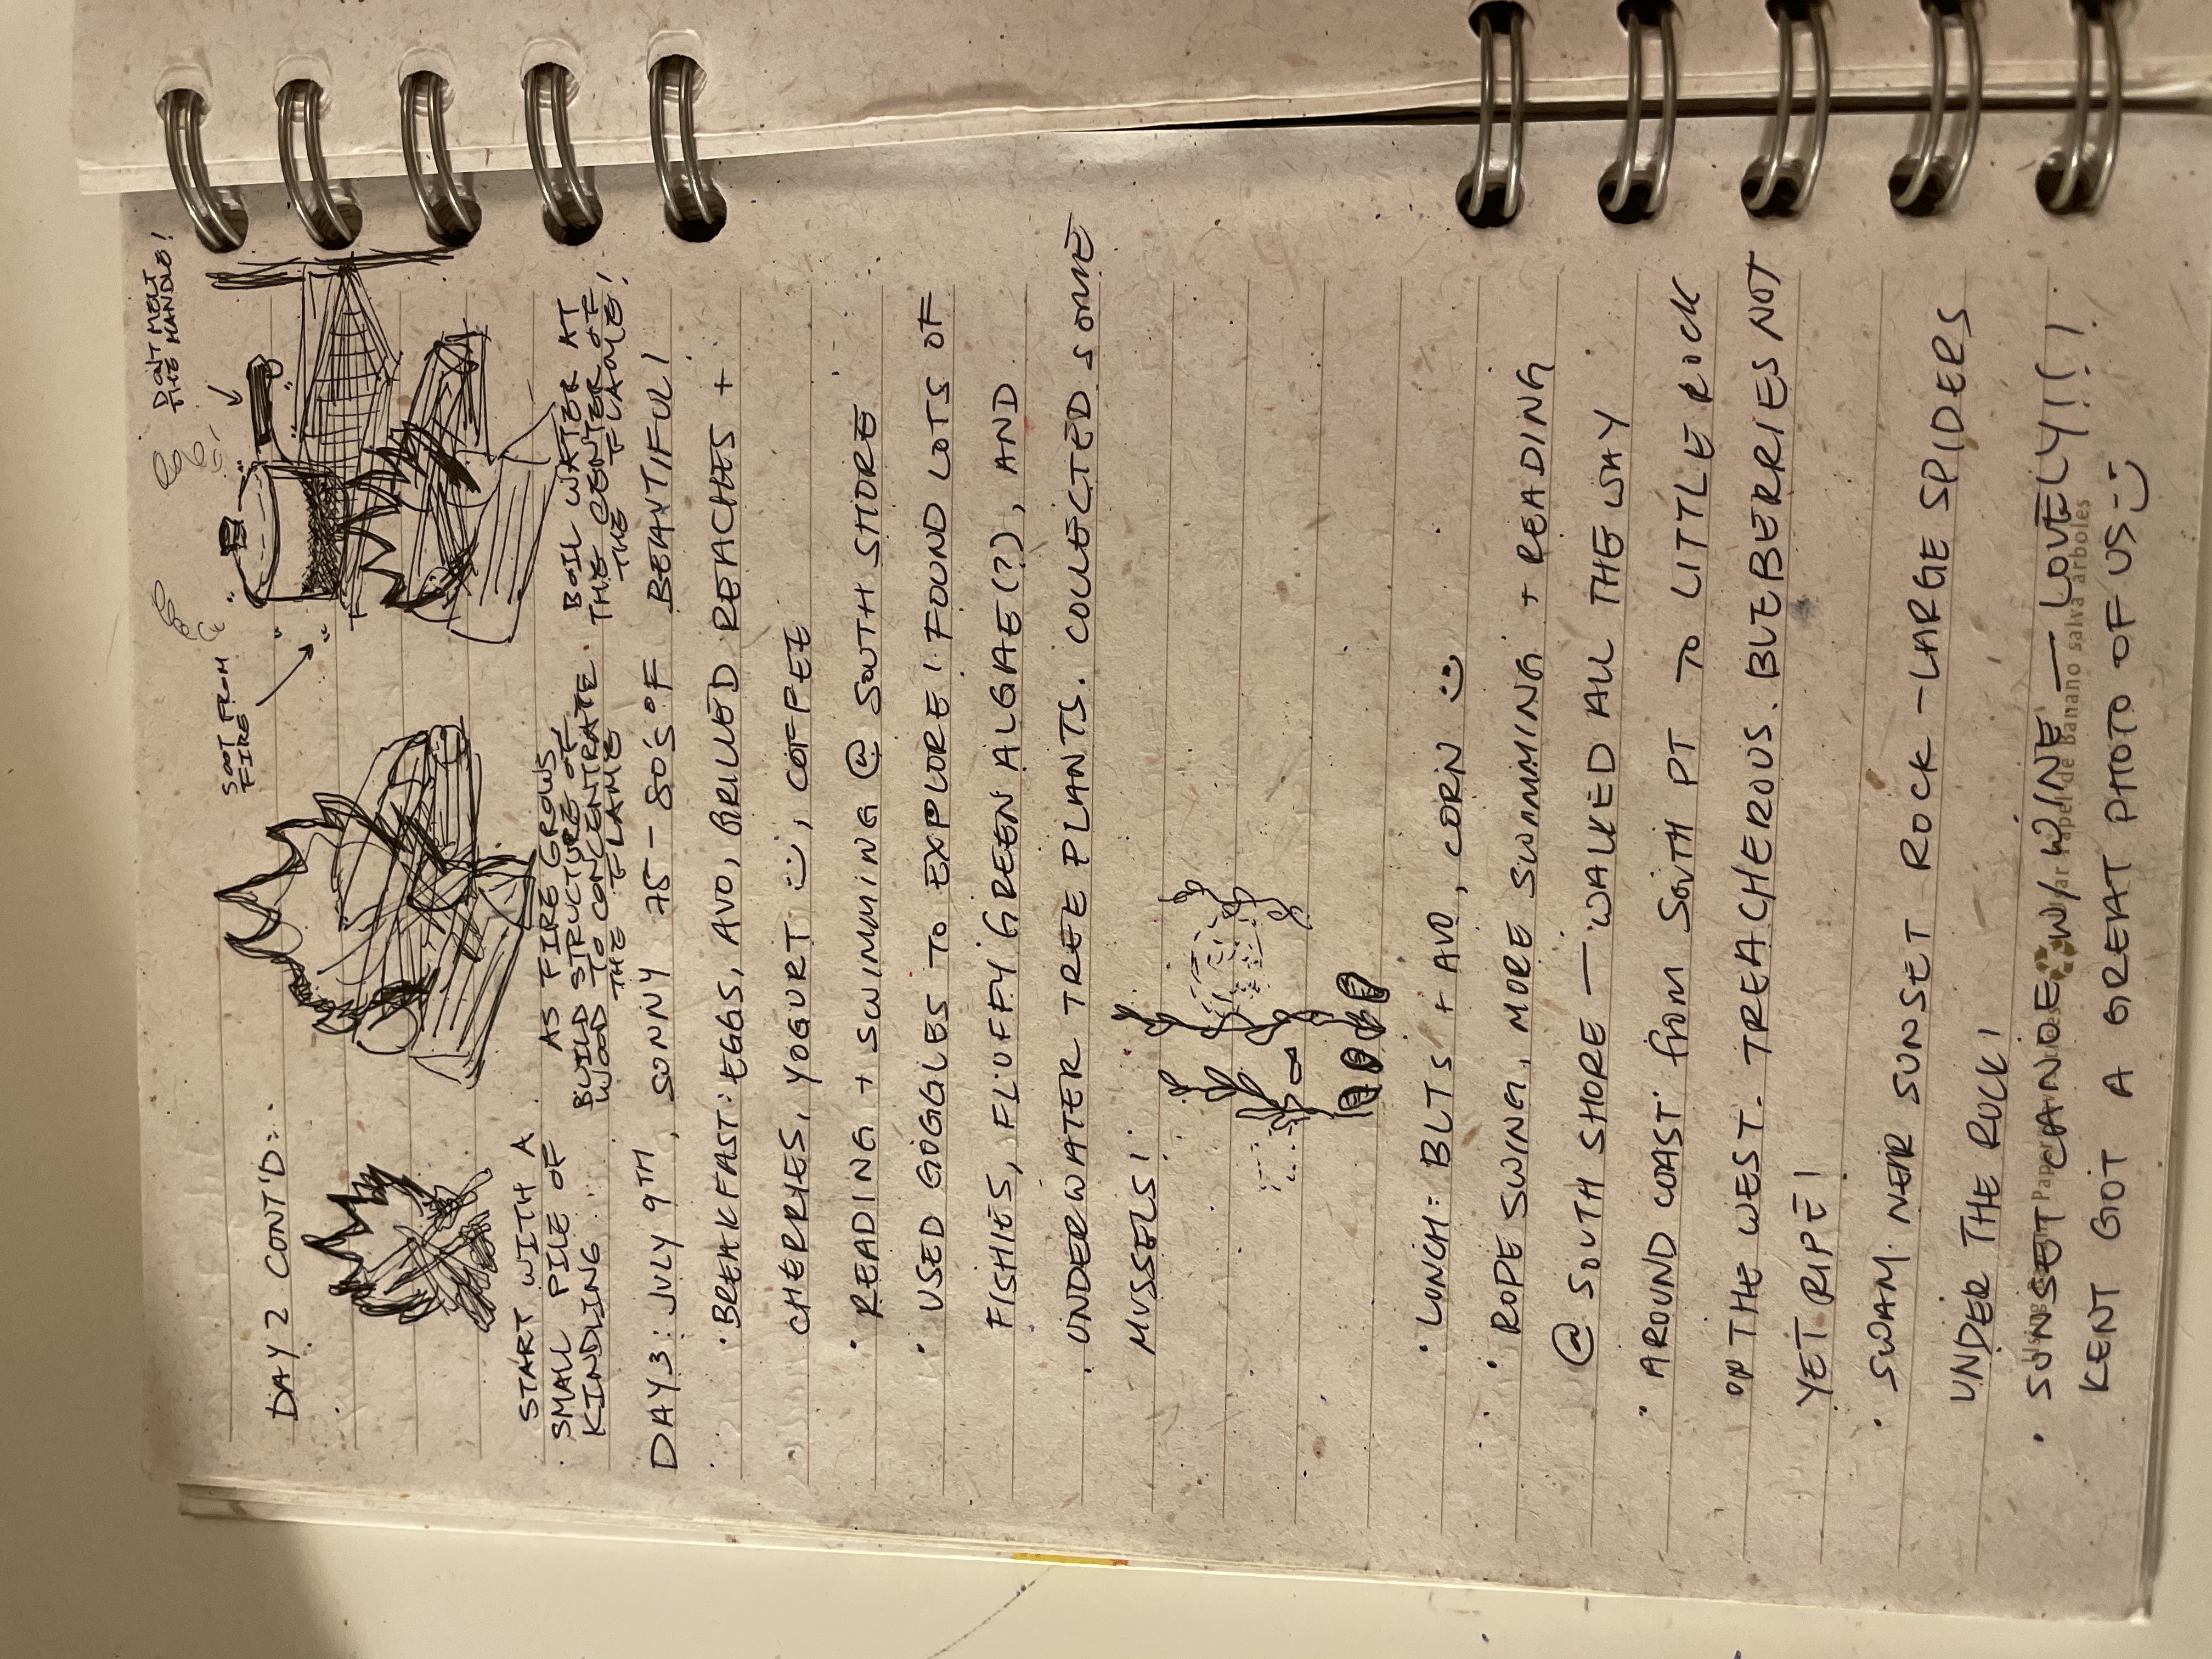 DON'T MELT
THE HANDLE!
SOOT FROM
FIRE
DAY 2 CONT'D:
START WITH A
SMALL PILE OF
KINDLING
AS FIRE GROWS,
BUILD STRUCTURE OF
WOOD TO CONCENTRATE
THE FLAME
BOIL WATER AT
THE CENTER OF
THE FLAME!
DAY 3: JULY 9TH, SUNNY 75-80'S °F BEAUTIFUL!
• BREAKFAST: EGGS, AVO, GRILLED PEACHES +
CHERRIES, YOGURT :), COFFEE
• READING + SWIMMING @ SOUTH SHORE
• USED GOGGLES TO EXPLORE! FOUND LOTS OF
FISHIES, FLUFFY GREEN ALGAE(?), AND
UNDERWATER TREE PLANTS. COLLECTED SOME
MUSSELS!
• LUNCH: BLTS + AVO, CORN :)
• ROPE SWING, MORE SWIMMING + READING
@ SOUTH SHORE — WALKED ALL THE WAY
• AROUND COAST from SOUTH PT TO LITTLE ROCK
ON THE WEST. TREACHEROUS. BLEBERRIES NOT
YET RIPE!
• SWAM NEAR SUNSET ROCK - LARGE SPIDERS
UNDER THE ROCK!
• SUNSET CANOE W/ WINE — LOVELY!!!
Using Banana Paper saves trees Usar Papel de Banano salva árboles
KENT GOT A GREAT PHOTO OF US :)